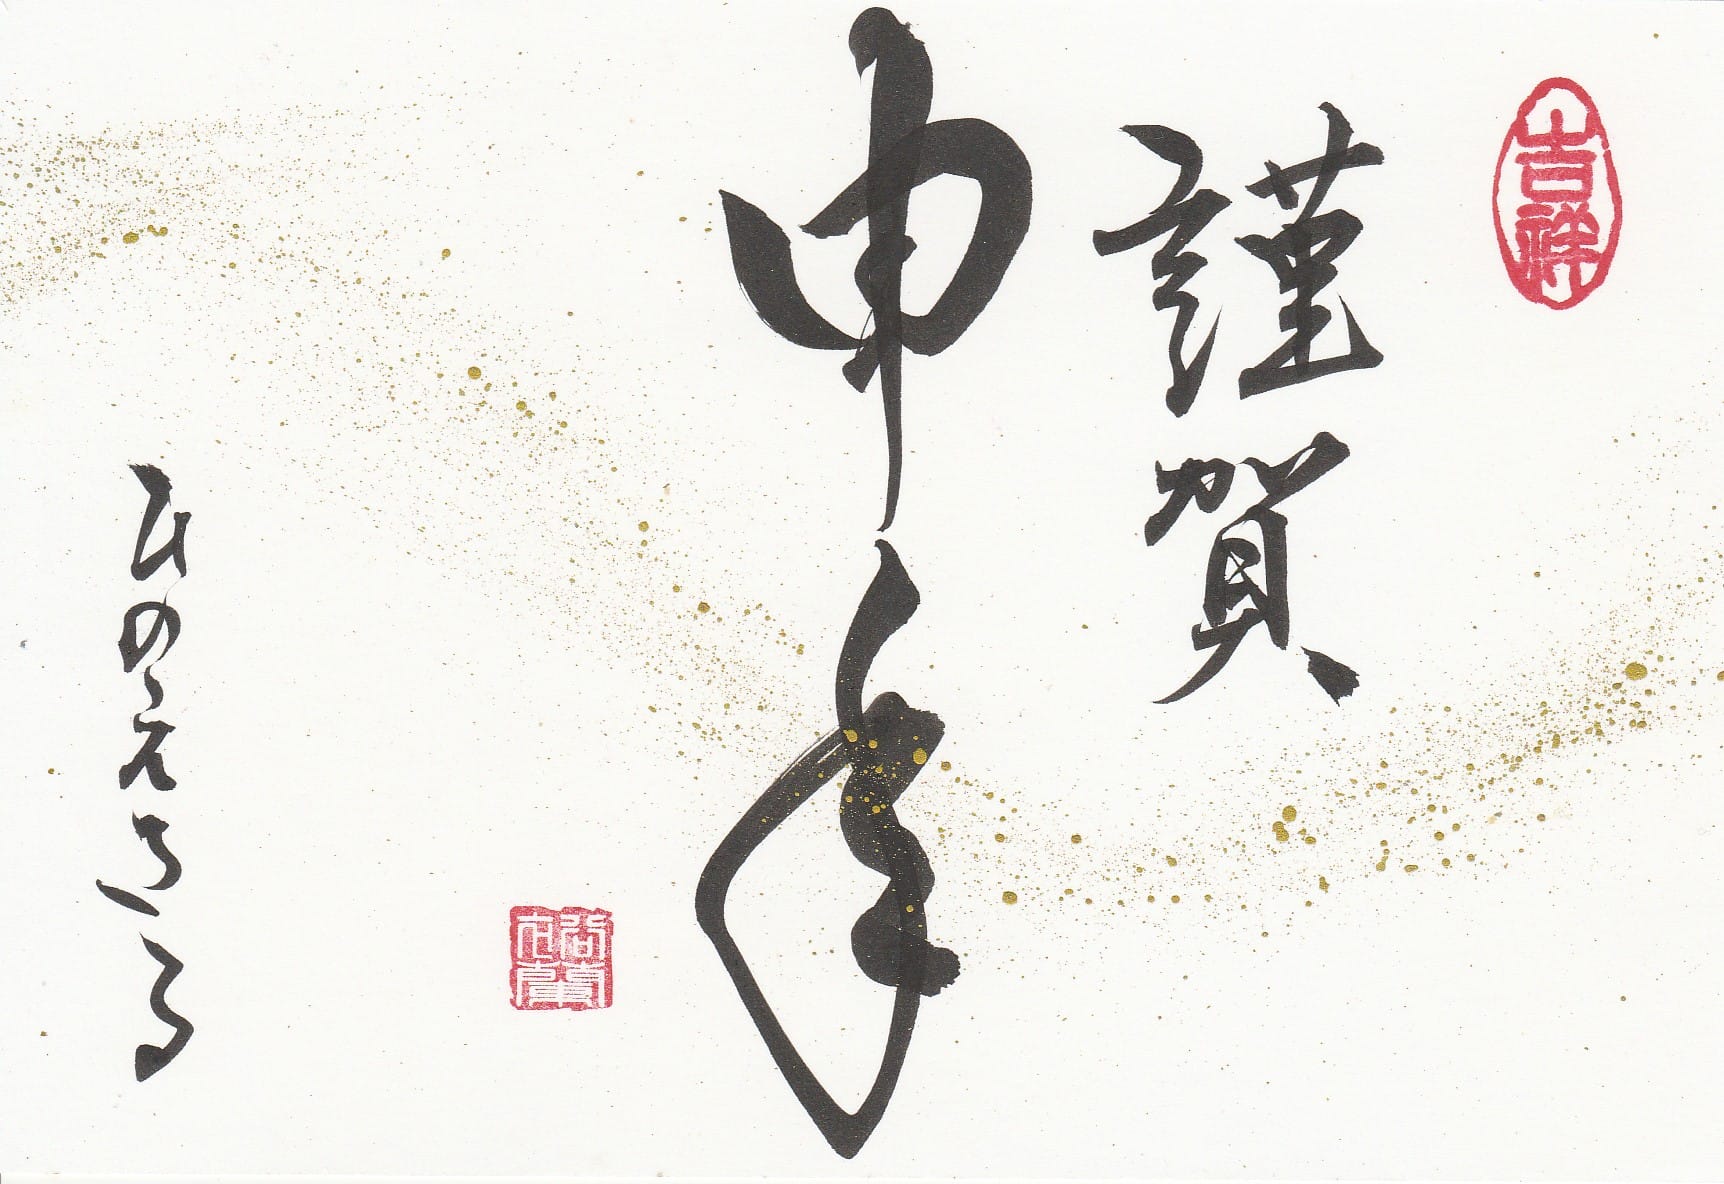 吉祥
謹賀
申年
ひのえさる